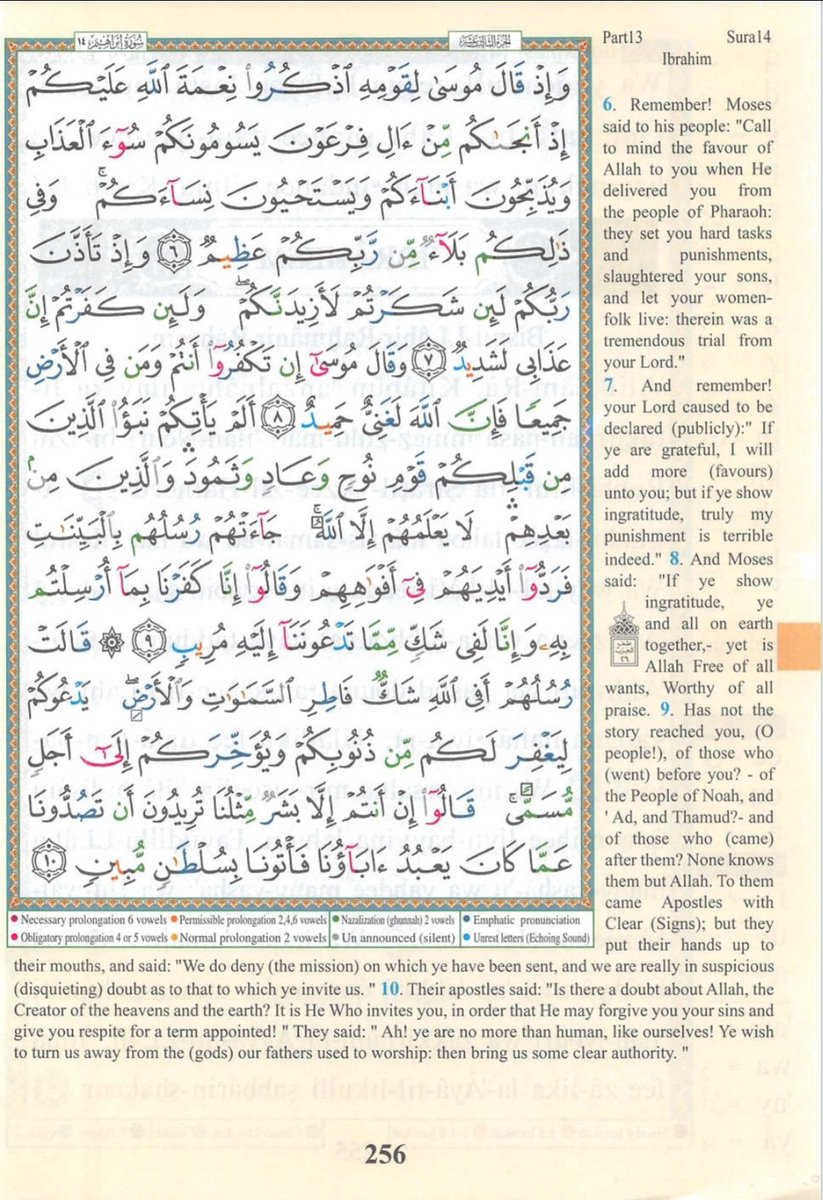 سُورَةُ إِبْرَاهِيم ١٤
الجزء الثالث عشر
وَإِذْ قَالَ مُوسَىٰ لِقَوْمِهِ ٱذْكُرُوا۟ نِعْمَةَ ٱللَّهِ عَلَيْكُمْ
إِذْ أَنجَىٰكُم مِّنْ ءَالِ فِرْعَوْنَ يَسُومُونَكُمْ سُوٓءَ ٱلْعَذَابِ
وَيُذَبِّحُونَ أَبْنَآءَكُمْ وَيَسْتَحْيُونَ نِسَآءَكُمْ ۚ وَفِى
ذَٰلِكُم بَلَآءٌ مِّن رَّبِّكُمْ عَظِيمٌ ٦ وَإِذْ تَأَذَّنَ
رَبُّكُمْ لَئِن شَكَرْتُمْ لَأَزِيدَنَّكُمْ ۖ وَلَئِن كَفَرْتُمْ إِنَّ
عَذَابِى لَشَدِيدٌ ٧ وَقَالَ مُوسَىٰٓ إِن تَكْفُرُوٓا۟ أَنتُمْ وَمَن فِى ٱلْأَرْضِ
جَمِيعًا فَإِنَّ ٱللَّهَ لَغَنِىٌّ حَمِيدٌ ٨ أَلَمْ يَأْتِكُمْ نَبَؤُا۟ ٱلَّذِينَ
مِن قَبْلِكُمْ قَوْمِ نُوحٍ وَعَادٍ وَثَمُودَ ۛ وَٱلَّذِينَ مِنۢ
بَعْدِهِمْ ۛ لَا يَعْلَمُهُمْ إِلَّا ٱللَّهُ ۚ جَآءَتْهُمْ رُسُلُهُم بِٱلْبَيِّنَٰتِ
فَرَدُّوٓا۟ أَيْدِيَهُمْ فِىٓ أَفْوَٰهِهِمْ وَقَالُوٓا۟ إِنَّا كَفَرْنَا بِمَآ أُرْسِلْتُم
بِهِۦ وَإِنَّا لَفِى شَكٍّ مِّمَّا تَدْعُونَنَآ إِلَيْهِ مُرِيبٍ ٩ ۞ قَالَتْ
رُسُلُهُمْ أَفِى ٱللَّهِ شَكٌّ فَاطِرِ ٱلسَّمَٰوَٰتِ وَٱلْأَرْضِ ۖ يَدْعُوكُمْ
لِيَغْفِرَ لَكُم مِّن ذُنُوبِكُمْ وَيُؤَخِّرَكُمْ إِلَىٰٓ أَجَلٍ
مُّسَمًّى ۚ قَالُوٓا۟ إِنْ أَنتُمْ إِلَّا بَشَرٌ مِّثْلُنَا تُرِيدُونَ أَن تَصُدُّونَا
عَمَّا كَانَ يَعْبُدُ ءَابَآؤُنَا فَأْتُونَا بِسُلْطَٰنٍ مُّبِينٍ ١٠
Necessary prolongation 6 vowels Permissible prolongation 2,4,6 vowels Nazalization (ghunnah) 2 vowels Emphatic pronunciation
Obligatory prolongation 4 or 5 vowels Normal prolongation 2 vowels Un announced (silent) Unrest letters (Echoing Sound)
Part13 Sura14
Ibrahim
6. Remember! Moses
said to his people: "Call
to mind the favour of
Allah to you when He
delivered you from
the people of Pharaoh:
they set you hard tasks
and punishments,
slaughtered your sons,
and let your women-
folk live: therein was a
tremendous trial from
your Lord."
7. And remember!
your Lord caused to be
declared (publicly):" If
ye are grateful, I will
add more (favours)
unto you; but if ye show
ingratitude, truly my
punishment is terrible
indeed." 8. And Moses
said: "If ye show
ingratitude, ye
and all on earth
together,- yet is
Allah Free of all
wants, Worthy of all
praise. 9. Has not the
story reached you, (O
people!), of those who
(went) before you? - of
the People of Noah, and
' Ad, and Thamud?- and
of those who (came)
after them? None knows
them but Allah. To them
came Apostles with
Clear (Signs); but they
put their hands up to
their mouths, and said: "We do deny (the mission) on which ye have been sent, and we are really in suspicious
(disquieting) doubt as to that to which ye invite us. " 10. Their apostles said: "Is there a doubt about Allah, the
Creator of the heavens and the earth? It is He Who invites you, in order that He may forgive you your sins and
give you respite for a term appointed! " They said: " Ah! ye are no more than human, like ourselves! Ye wish
to turn us away from the (gods) our fathers used to worship: then bring us some clear authority. "
256